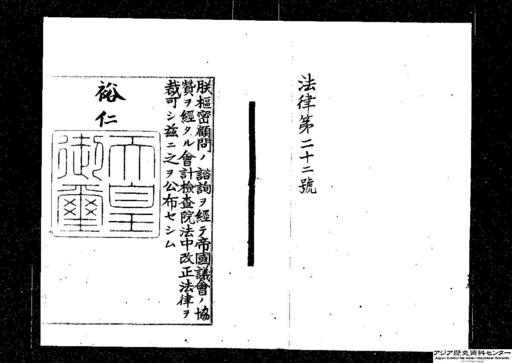 法律第二十二號
朕樞密顧問ノ諮詢ヲ經テ帝國議會ノ協
贊ヲ經タル會計檢查院法中改正法律ヲ
裁可シ兹ニ之ヲ公布セシム
裕仁
天皇
御璽
アジア歴史資料センター
Japan Center for Asian Historical Records